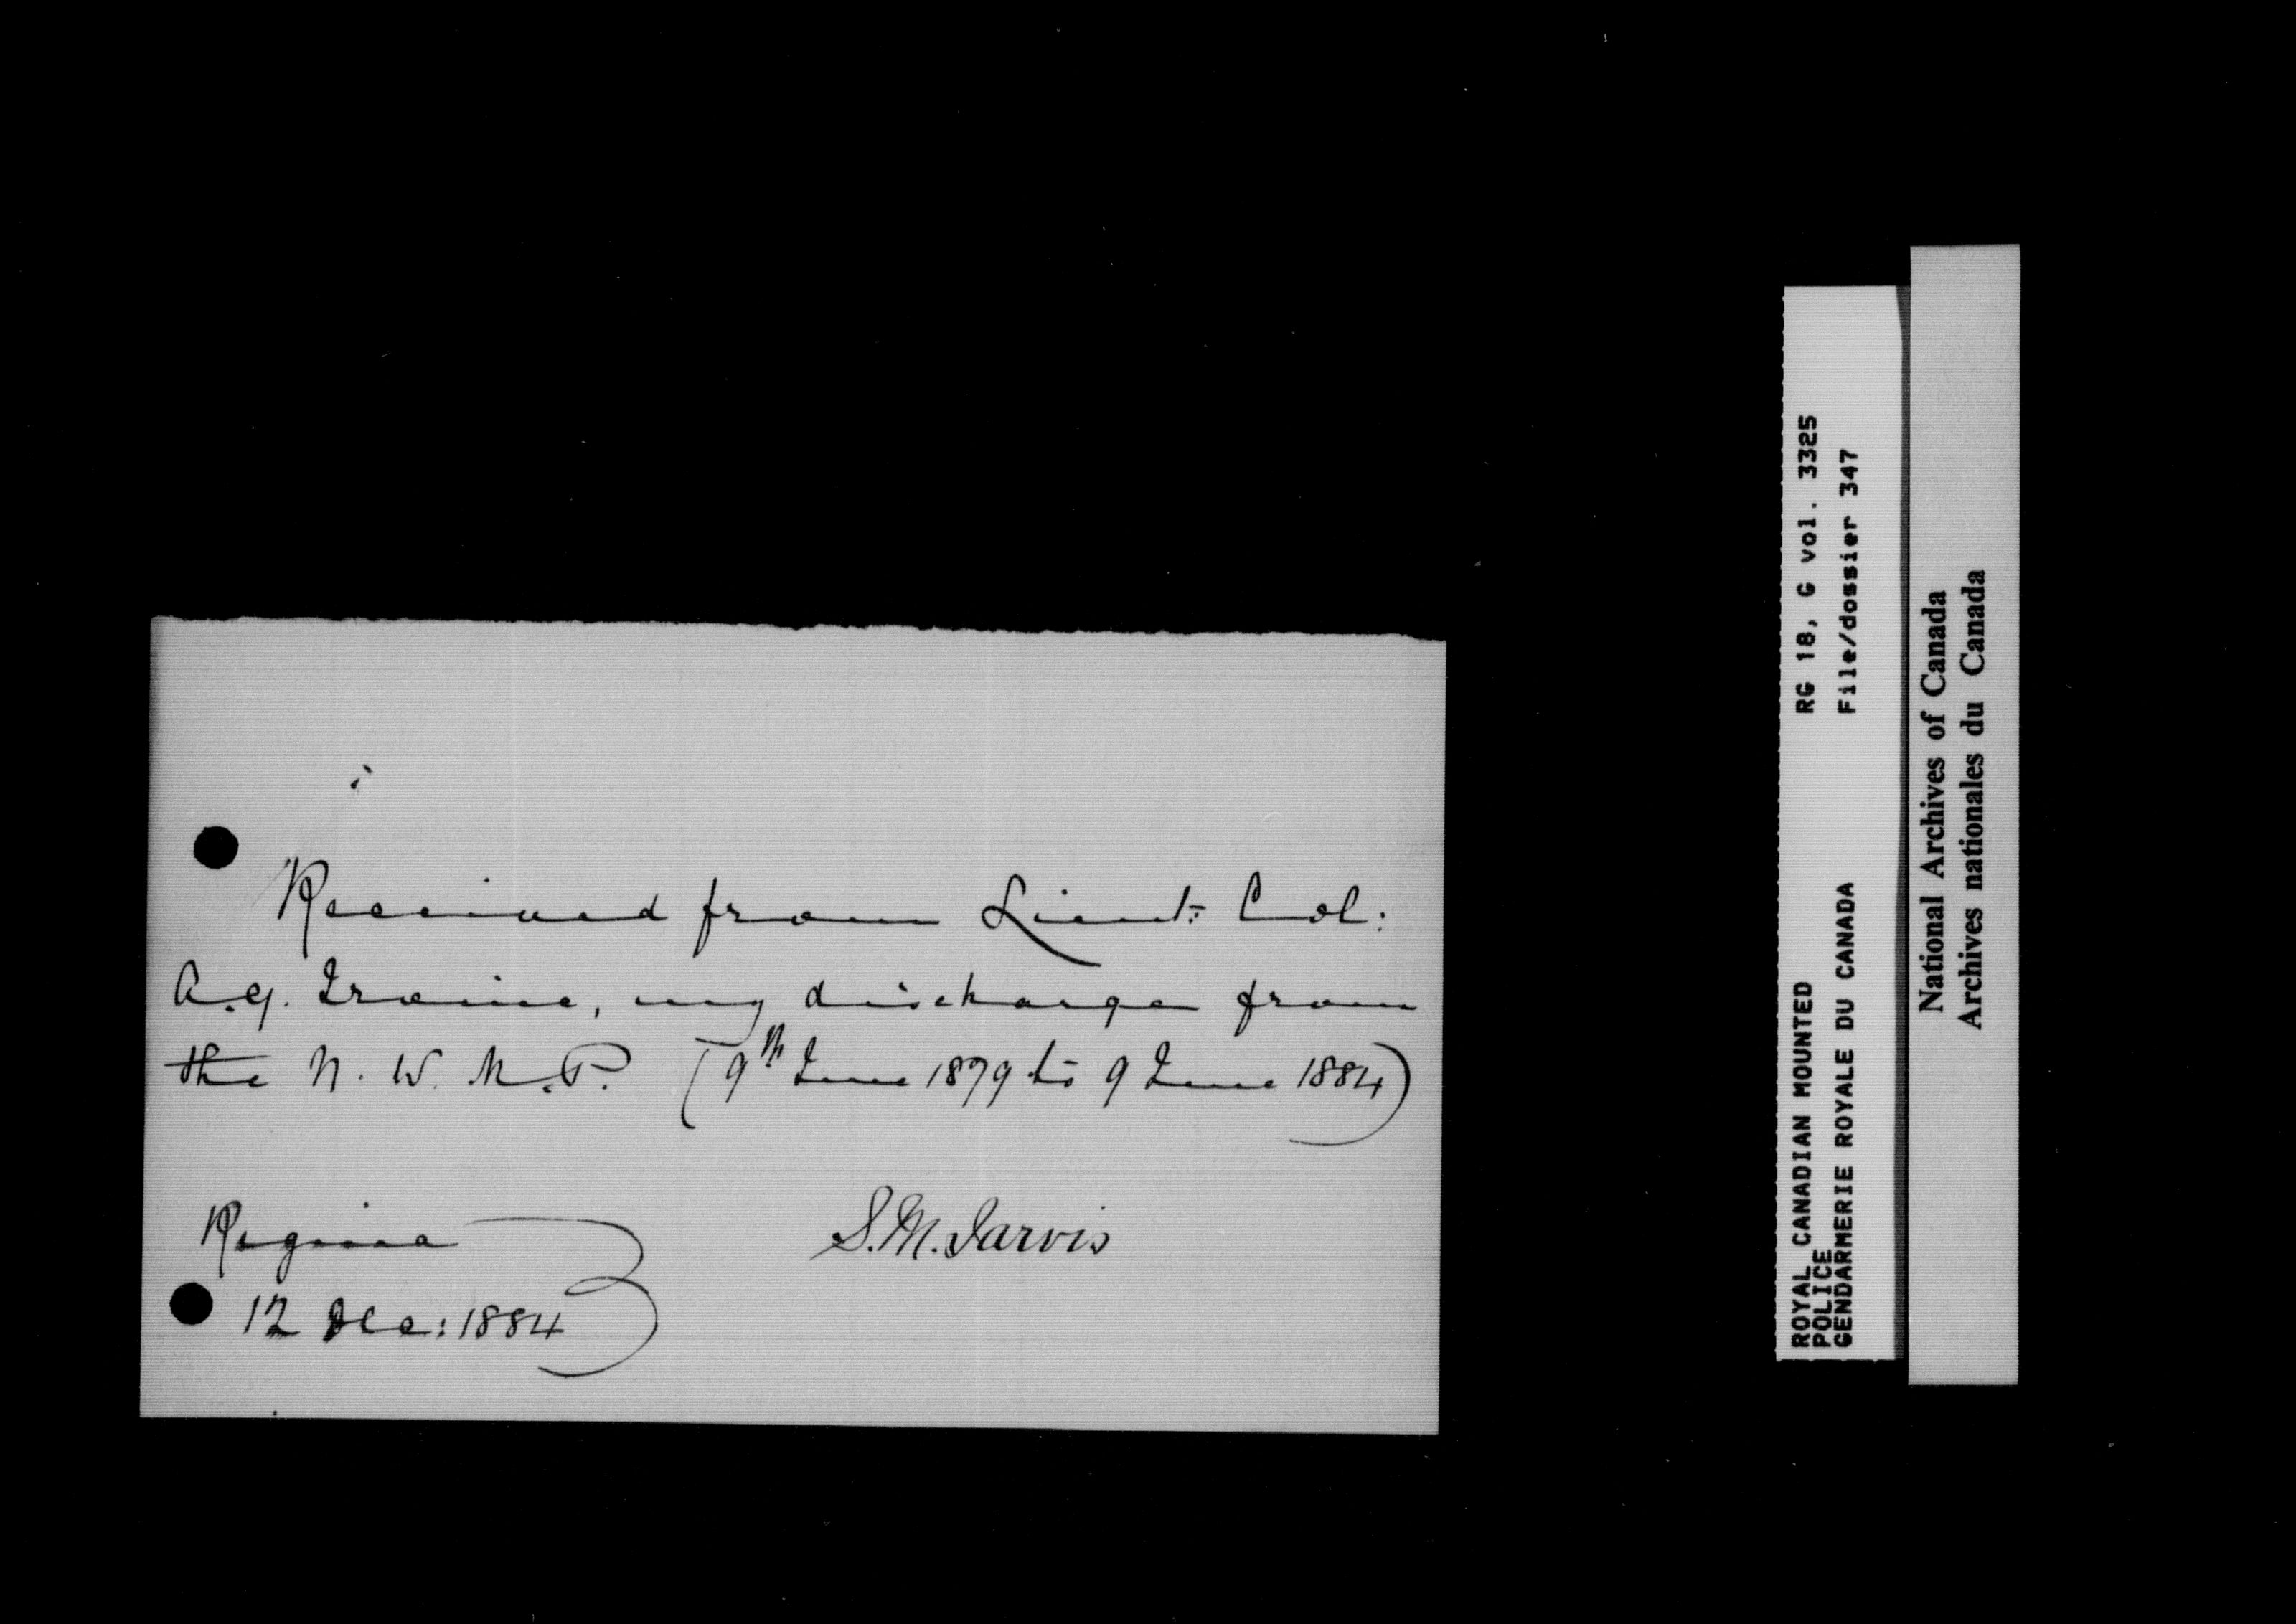 Received from Lieut: Col:
A.G. Irvine, my discharge from
the N. W. M. P. (9th June 1879 to 9 June 1884)
Regina
12 Dec: 1884
S. M. Jarvis
ROYAL CANADIAN MOUNTED RG 18, G vol. 3325
POLICE
GENDARMERIE ROYALE DU CANADA File/dossier 347
National Archives of Canada
Archives nationales du Canada